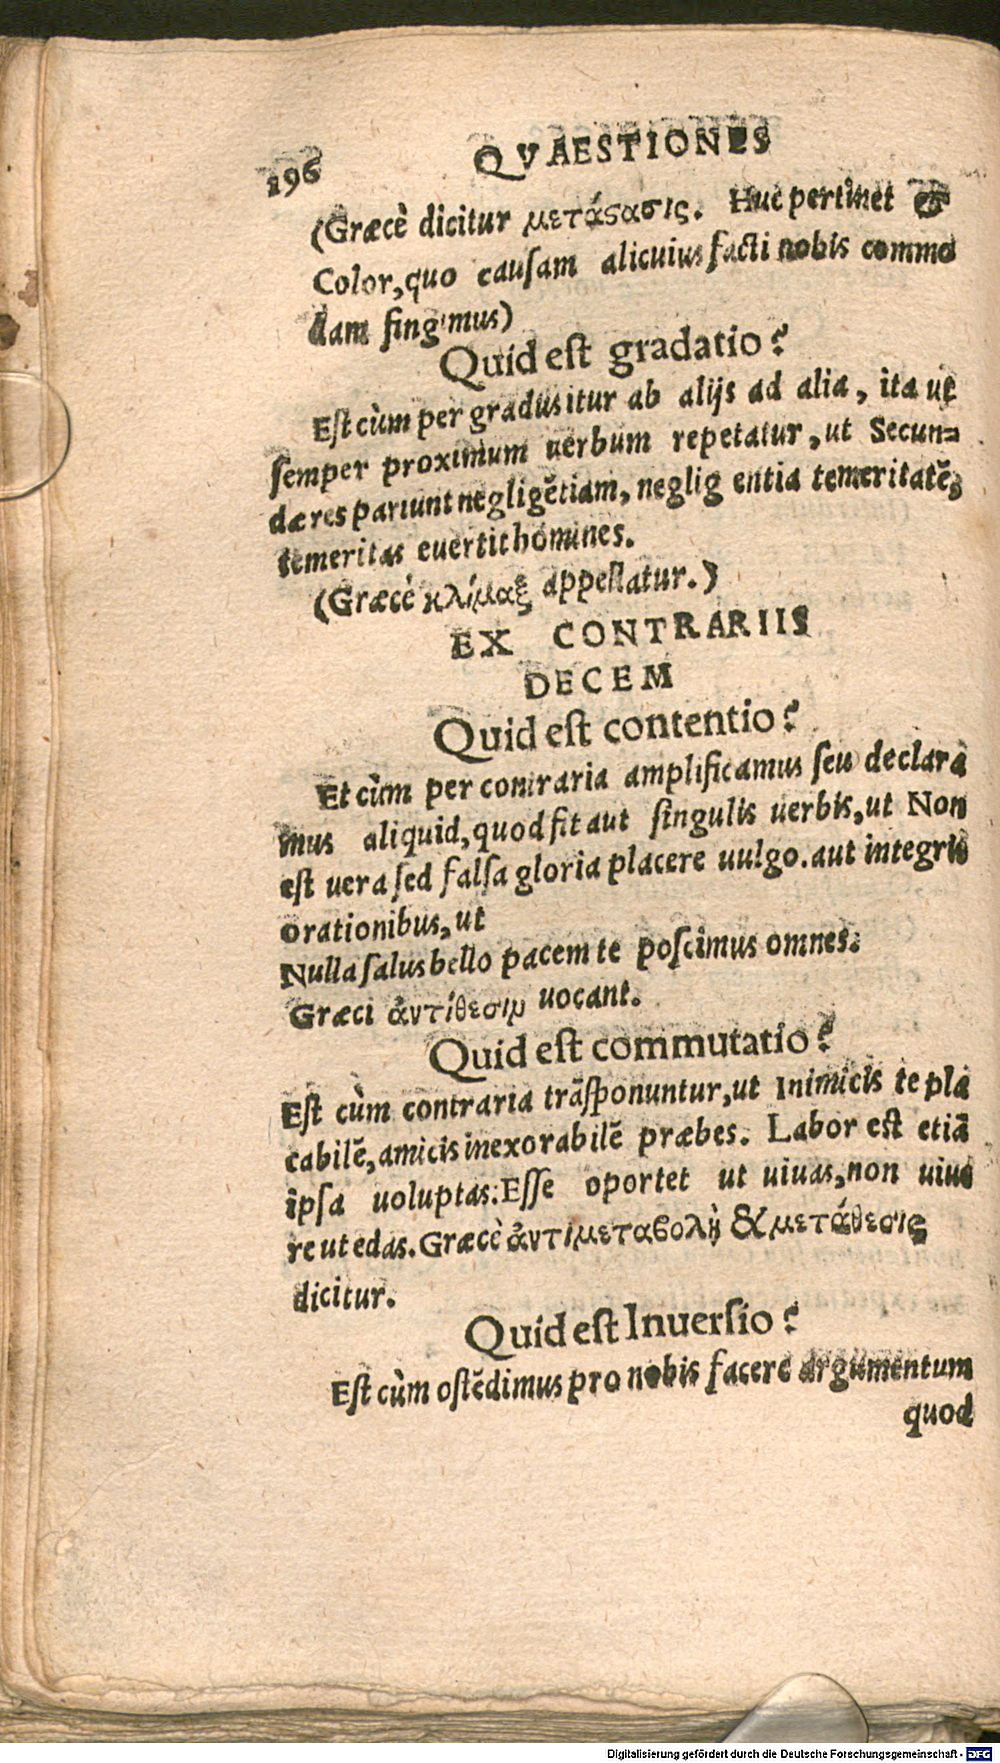 196 QVAESTIONES
(Græcè dicitur μετάϛασις. Huc pertinet &
Color, quo causam alicuius facti nobis commo
dam fingimus)
Quid est gradatio?
Est cùm per gradus itur ab alijs ad alia, ita ut
semper proximum uerbum repetatur, ut Secun=
dæ res pariunt negligẽtiam, negligentia temeritatẽ,
temeritas euertit homines.
(Græcè κλίμαξ appellatur.)
EX CONTRARIIS
DECEM
Quid est contentio?
Et cùm per contraria amplificamus seu declara
mus aliquid, quod fit aut singulis uerbis, ut Non
est uera sed falsa gloria placere uulgo. aut integris
orationibus, ut
Nulla salus bello pacem te poscimus omnes.
Græci ἀντίθεσιν uocant.
Quid est commutatio?
Est cùm contraria trãsponuntur, ut Inimicis te pla
cabilẽ, amicis inexorabilẽ præbes. Labor est etiã
ipsa uoluptas. Esse oportet ut uiuas, non uiue
re ut edas. Græcè ἀντιμεταβολὴ & μετάθεσις
dicitur.
Quid est Inuersio?
Est cùm ostẽdimus pro nobis facere argumentum
quod
Digitalisierung gefördert durch die Deutsche Forschungsgemeinschaft - DFG